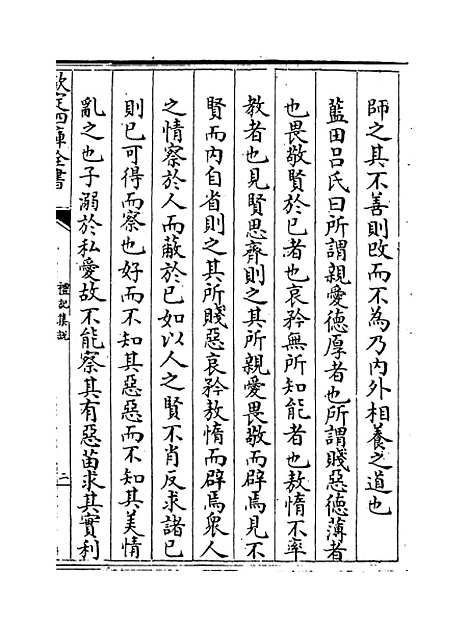 師之其不善則改而不為乃内外相養之道也
藍田呂氏曰所謂親愛德厚者也所謂賤惡德薄者
也畏敬賢於已者也哀矜無所知能者也敖惰不率
教者也見賢思齊則之其所親愛畏敬而辟焉見不
賢而内自省則之其所賤惡哀矜敖惰而辟焉衆人
之情察於人而蔽於已如以人之賢不肖反求諸已
則已可得而察也好而不知其惡惡而不知其美情
亂之也子溺於私愛故不能察其有惡苗求其實利
欽定四庫全書
禮記集說